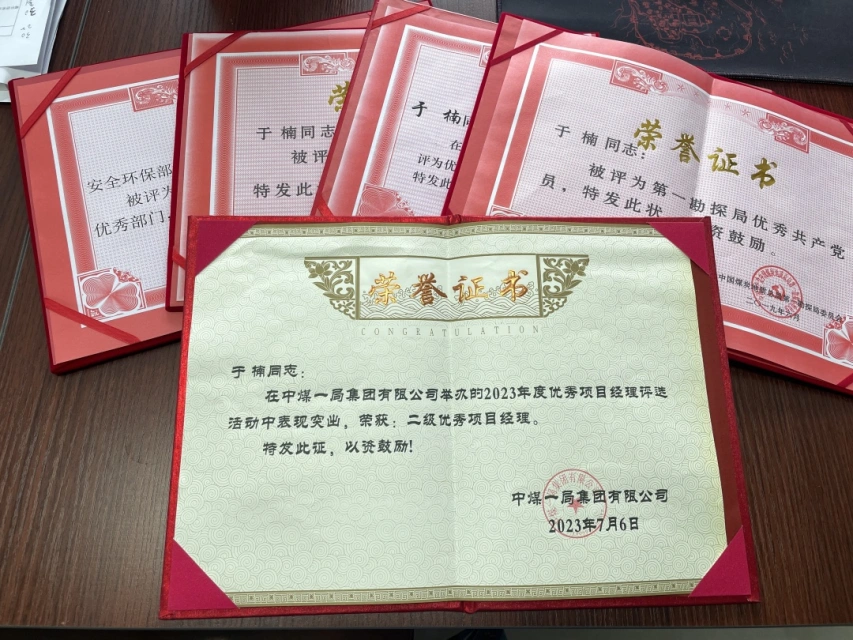 安全环保部
被评为
优秀部门
于 楠同志
被评
特发此
于 楠同
评为优
特发此
荣誉证书
于 楠同志：
被评为第一勘探局优秀共产党
员，特发此状，
资鼓励。
二〇一九年
荣誉证书
CONGRATULATION
于 楠同志：
在中煤一局集团有限公司举办的2023年度优秀项目经理评选
活动中表现突出，荣获：二级优秀项目经理。
特发此证，以资鼓励！
中煤一局集团有限公司
2023年7月6日